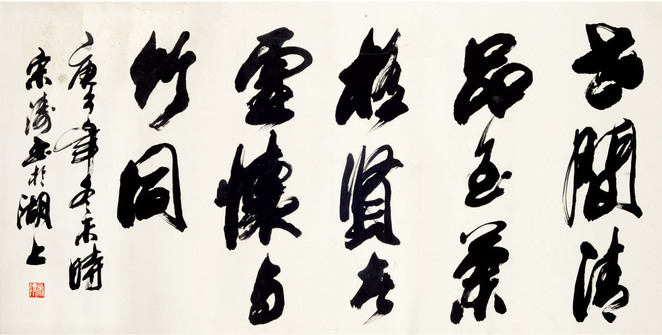 世間清
品至蘭
極賢者
虛懷与
竹同
庚午年冬末時
宋濤書於湖上